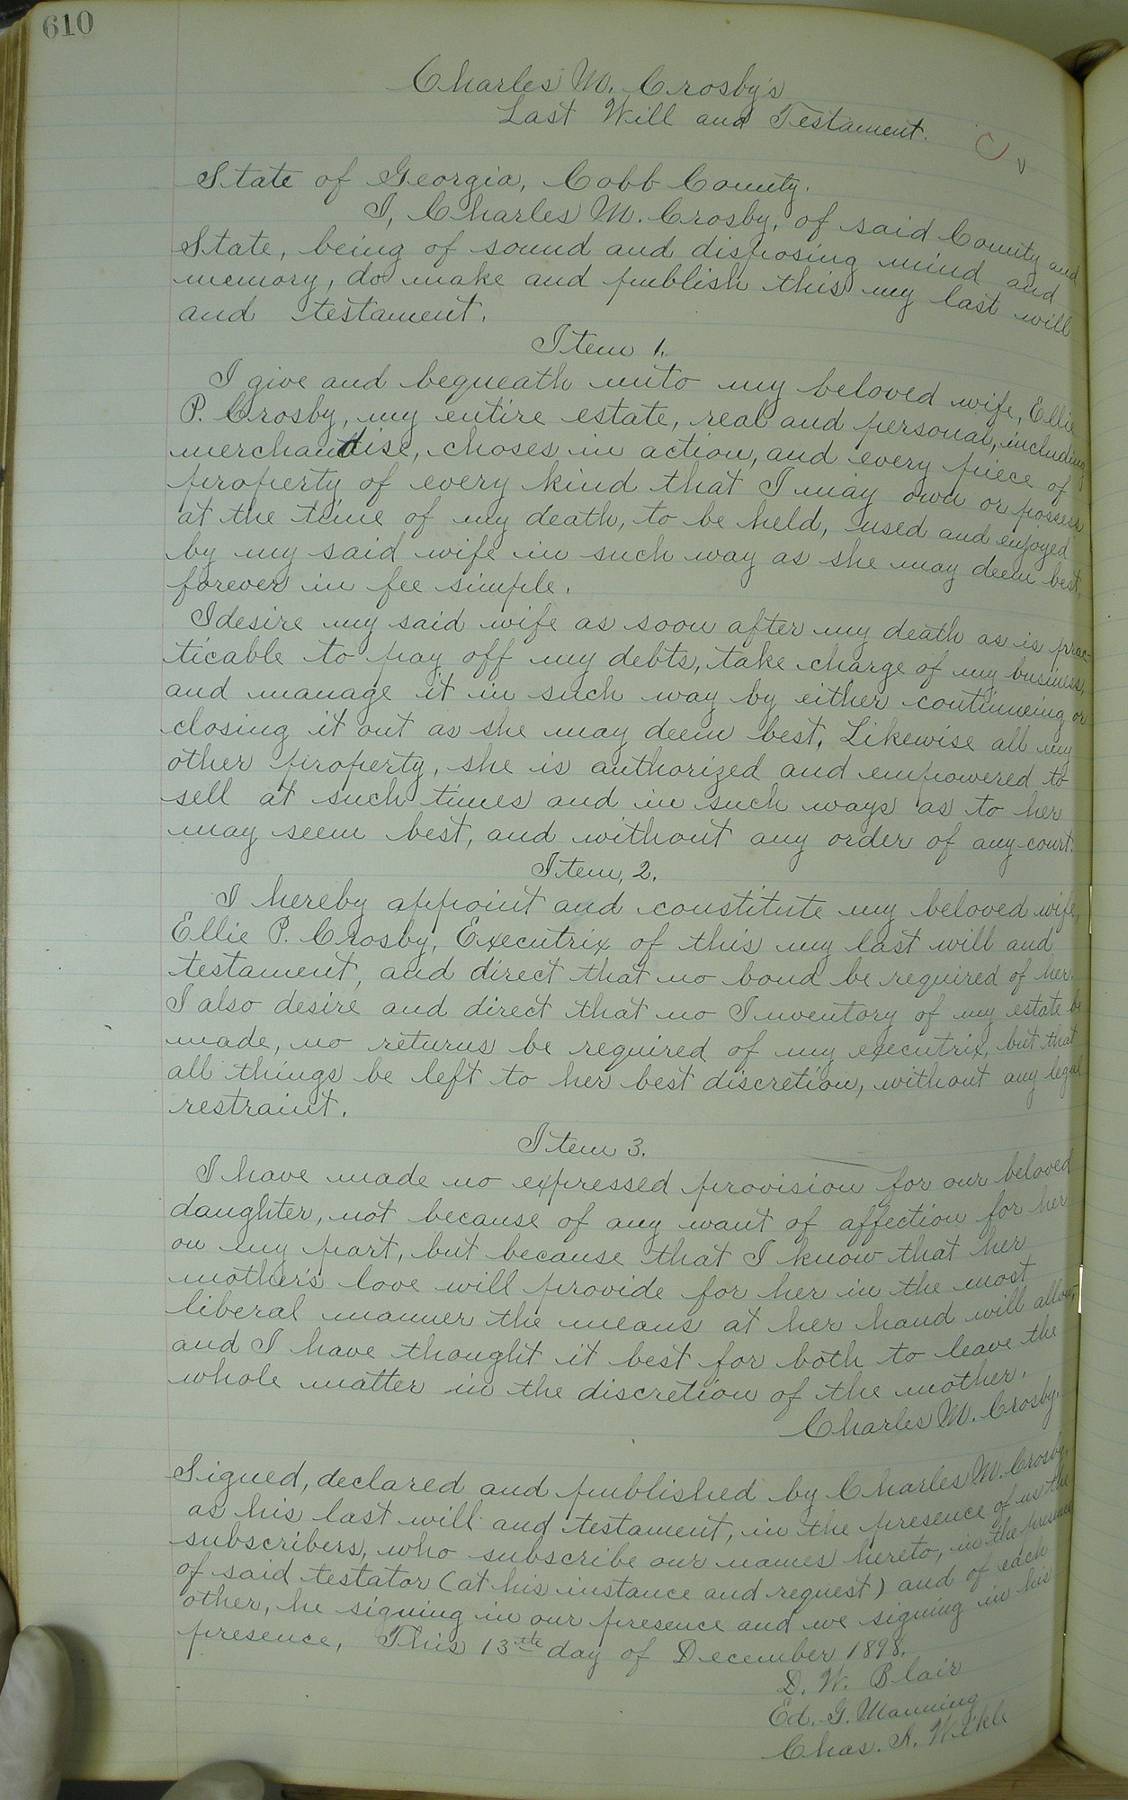 610
Charles M. Crosby's
Last Will and Testament.
State of Georgia, Cobb County.
I, Charles M. Crosby, of said County and
State, being of sound and disposing mind and
memory, do make and publish this my last will
and testament.
Item 1.
I give and bequeath unto my beloved wife, Ellie
P. Crosby, my entire estate, real and personal, including
merchandise, choses in action, and every piece of
property of every kind that I may own or possess
at the time of my death, to be held, used and enjoyed
by my said wife in such way as she may deem best,
forever in fee simple.
I desire my said wife as soon after my death as is prac-
ticable to pay off my debts, take charge of my business,
and manage it in such way by either continueing or
closing it out as she may deem best. Likewise all my
other property, she is authorized and empowered to
sell at such times and in such ways as to her
may seem best, and without any order of any court.
Item, 2.
I hereby appoint and constitute my beloved wife,
Ellie P. Crosby, Executrix of this my last will and
testament, and direct that no bond be required of her.
I also desire and direct that no Inventory of my estate be
made, no returns be required of my executrix, but that
all things be left to her best discretion, without any legal
restraint.
Item 3.
I have made no expressed provision for our beloved
daughter, not because of any want of affection for her
on my part, but because that I know that her
mother's love will provide for her in the most
liberal manner the means at her hand will allow,
and I have thought it best for both to leave the
whole matter in the discretion of the mother.
Charles M. Crosby.
Signed, declared and published by Charles M. Crosby,
as his last will and testament, in the presence of us the
subscribers, who subscribe our names hereto, in the presence
of said testator (at his instance and request) and of each
other, he signing in our presence and we signing in his
presence, This 13th day of December 1898.
D. W. Blair
Ed. G. Manning
Chas. A. Wikle